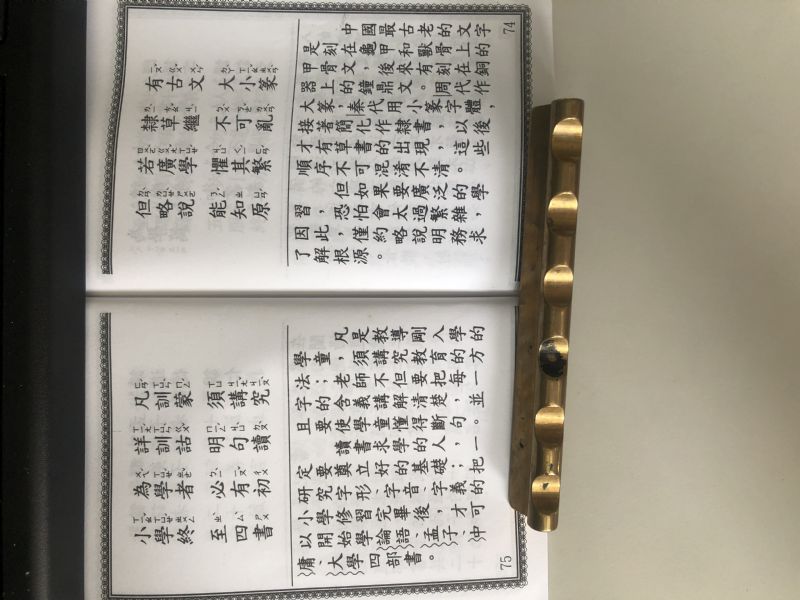 有古文　大小篆
隸草繼　不可亂
若廣學　懼其繁
但略說　能知原
中國最古老的文字
是刻在龜甲和獸骨上的
甲骨文，後來有刻在銅
器上的鐘鼎文。周代作
大篆，秦代用小篆字體，
接著簡化作隸書，以後，
才有草書的出現，這些
順序不可混淆不清。
但如果要廣泛的學
習，恐怕會太過繁雜，
因此，僅約略說明務求
了解根源。
74
凡訓蒙　須講究
詳訓詁　明句讀
為學者　必有初
小學終　至四書
凡是教導剛入學的
學童，須講究教育的方
法；老師不但要把每一
字的含義講解清楚，並
且要使學童懂得斷句。
讀書求學的人，一
定要奠立好的基礎；把
研究字形、字音、字義的
小學修習完畢後，才可
以開始學論語、孟子、中
庸、大學四部書。
75